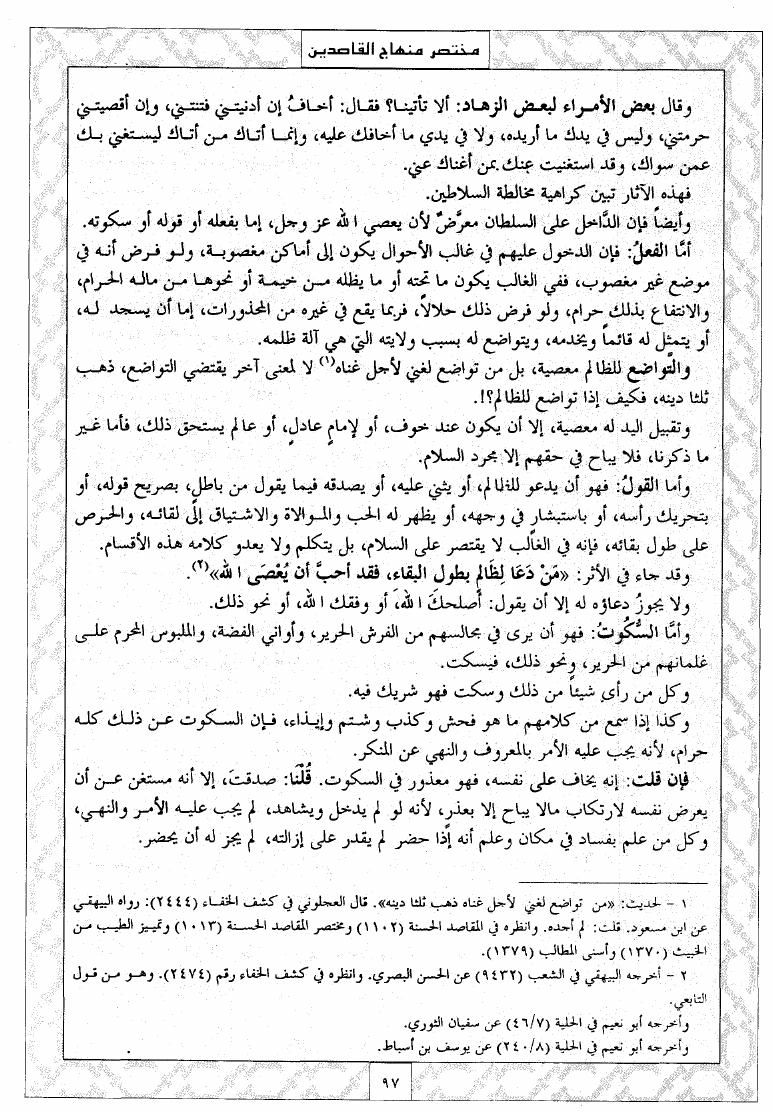 مختصر منهاج القاصدين
وقال بعض الأمراء لبعض الزهاد: ألا تأتينا؟ فقال: أخافُ إن أدنيتني فتنتني، وإن أقصيتني
حرمتني، وليس في يدك ما أريده، ولا في يدي ما أخافك عليه، وإنما أتاك من أتاك ليستغني بك
عمن سواك، وقد استغنيت عنك بمن أغناك عني.
فهذه الآثار تبين كراهية مخالطة السلاطين.
وأيضاً فإن الدَّاخل على السلطان معرَّضٌ لأن يعصي الله عز وجل، إما بفعله أو قوله أو سكوته.
أمَّا الفعلُ: فإن الدخول عليهم في غالب الأحوال يكون إلى أماكن مغصوبة، ولو فرض أنه في
موضع غير مغصوب، ففي الغالب يكون ما تحته أو ما يظله من خيمة أو نحوها من ماله الحرام،
والانتفاع بذلك حرام، ولو فرض ذلك حلالاً، فربما يقع في غيره من المحذورات، إما أن يسجد له،
أو يتمثل له قائماً ويخدمه، ويتواضع له بسبب ولايته التي هي آلة ظلمه.
والتَّواضع للظالم معصية، بل من تواضع لغني لأجل غناه(١) لا لمعنى آخر يقتضي التواضع، ذهب
ثلثا دينه، فكيف إذا تواضع للظالم؟!.
وتقبيل اليد له معصية، إلا أن يكون عند خوف، أو لإمامٍ عادلٍ، أو عالم يستحق ذلك، فأما غير
ما ذكرنا، فلا يباح في حقهم إلا مجرد السلام.
وأما القولُ: فهو أن يدعو للظالم، أو يثني عليه، أو يصدقه فيما يقول من باطلٍ، بصريح قوله، أو
بتحريك رأسه، أو باستبشارٍ في وجهه، أو يظهر له الحب والموالاة والاشتياق إلى لقائه، والحرص
على طول بقائه، فإنه في الغالب لا يقتصر على السلام، بل يتكلم ولا يعدو كلامه هذه الأقسام.
وقد جاء في الأثر: «مَنْ دَعَا لِظَالمٍ بطول البقاء، فقد أحبَّ أن يُعْصَى الله»(٢).
ولا يجوزُ دعاؤه له إلا أن يقول: أصلحكَ اللهُ، أو وفقك الله، أو نحو ذلك.
وأمَّا السُّكُوتُ: فهو أن يرى في مجالسهم من الفرش الحرير، وأواني الفضة، والملبوس المحرم على
غلمانهم من الحرير، ونحو ذلك، فيسكت.
وكل من رأى شيئاً من ذلك وسكت فهو شريك فيه.
وكذا إذا سمع من كلامهم ما هو فحش وكذب وشتم وإيذاء، فإن السكوت عن ذلك كله
حرام، لأنه يجب عليه الأمر بالمعروف والنهي عن المنكر.
فإن قلت: إنه يخاف على نفسه، فهو معذور في السكوت. قُلْنَا: صدقتَ، إلا أنه مستغن عن أن
يعرض نفسه لارتكاب مالا يباح إلا بعذر، لأنه لو لم يدخل ويشاهد، لم يجب عليه الأمر والنهي،
وكل من علم بفساد في مكان وعلم أنه إذا حضر لم يقدر على إزالته، لم يجز له أن يحضر.
١ - لحديث: «من تواضع لغني لأجل غناه ذهب ثلثا دينه». قال العجلوني في كشف الخفاء (٢٤٤٤): رواه البيهقي
عن ابن مسعود. قلت: لم أجده. وانظره في المقاصد الحسنة (١١٠٢) ومختصر المقاصد الحسنة (١٠١٣) وتمييز الطيب من
الخبيث (١٣٧٠) وأسنى المطالب (١٣٧٩).
٢ - أخرجه البيهقي في الشعب (٩٤٣٢) عن الحسن البصري. وانظره في كشف الخفاء رقم (٢٤٧٤). وهو من قول
التابعي.
وأخرجه أبو نعيم في الحلية (٤٦/٧) عن سفيان الثوري.
وأخرجه أبو نعيم في الحلية (٢٤٠/٨) عن يوسف بن أسباط.
٩٧